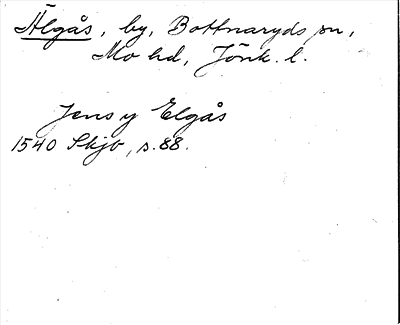 Älgås, by, Bottnaryds sn,
Mo hd, Jönk. l.
Jens y Elgås
1540 Skjb, s. 88.